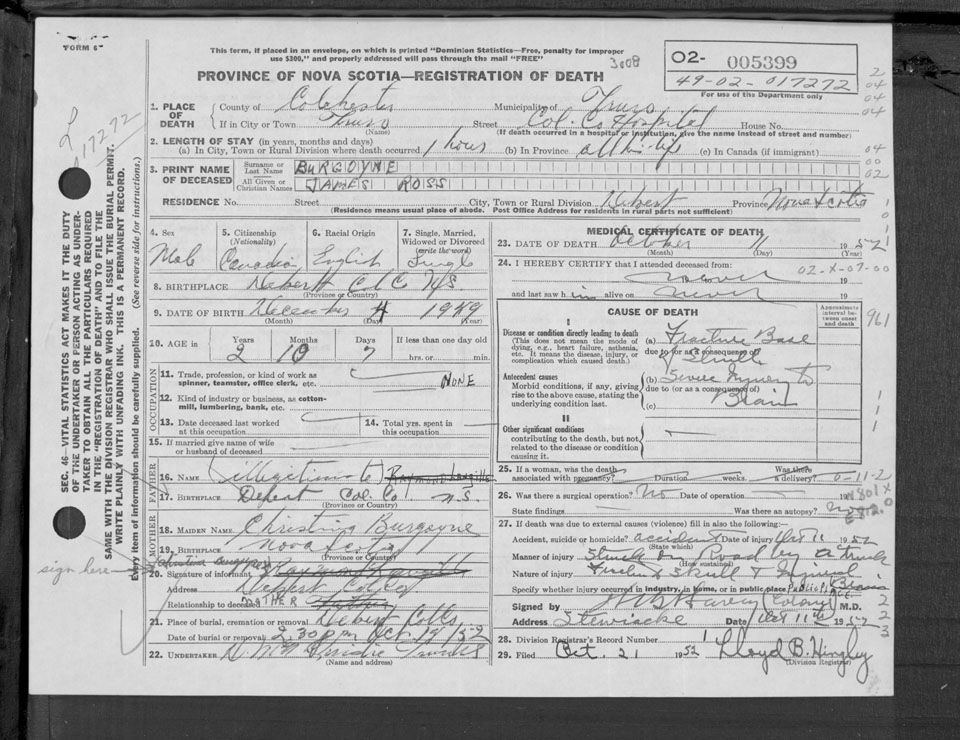 FORM 6
This form, if placed in an envelope, on which is printed "Dominion Statistics—Free, penalty for improper
use $300," and properly addressed will pass through the mail "FREE"
3008
02- 005399
49-02-017272
For use of the Department only
PROVINCE OF NOVA SCOTIA—REGISTRATION OF DEATH
1. PLACE OF DEATH County of Colchester Municipality of Truro
If in City or Town Truro Street Col. Co Hospital House No.
(Name) (If death occurred in a hospital or institution, give the name instead of street and number)
2. LENGTH OF STAY (in years, months and days)
(a) In City, Town or Rural Division where death occurred 1 hour (b) In Province all his life (c) In Canada (if immigrant)
3. PRINT NAME OF DECEASED Surname or Last Name BURGOYNE
All Given or Christian Names JAMES ROSS
RESIDENCE No. Street City, Town or Rural Division Debert Province Nova Scotia
(Residence means usual place of abode. Post Office Address for residents in rural parts not sufficient)
4. Sex Male
5. Citizenship (Nationality) Canadian
6. Racial Origin English
7. Single, Married, Widowed or Divorced (write the word) Single
8. BIRTHPLACE Debert Col C NS
(Province or Country)
9. DATE OF BIRTH December 4 1949
(Month) (Day) (Year)
10. AGE in Years 2 Months 10 Days 7 If less than one day old hrs. or min.
11. Trade, profession, or kind of work as spinner, teamster, office clerk, etc. NONE
12. Kind of industry or business, as cotton-mill, lumbering, bank, etc.
13. Date deceased last worked at this occupation
14. Total yrs. spent in this occupation
15. If married give name of wife or husband of deceased
OCCUPATION
FATHER
16. NAME illegitimate
17. BIRTHPLACE Debert Col. Co. N.S.
(Province or Country)
MOTHER
18. MAIDEN NAME Christina Burgoyne
19. BIRTHPLACE Nova Scotia
(Province or Country)
20. Signature of informant
Address Debert Col Co
Relationship to deceased MOTHER
21. Place of burial, cremation or removal Debert Col Co
Date of burial or removal 2.30 p.m Oct. 12/52
22. UNDERTAKER Truro NS
(Name and address)
MEDICAL CERTIFICATE OF DEATH
23. DATE OF DEATH October 11 1952
(Month) (Day) (Year)
24. I HEREBY CERTIFY that I attended deceased from
never 02-X-07-00
to 19
and last saw him alive on never 19
CAUSE OF DEATH
Approximate interval between onset and death
961
I
Disease or condition directly leading to death (a) Fracture Base
(This does not mean the mode of dying, e.g., heart failure, asthenia, etc. It means the disease, injury, or complication which caused death.)
due to (or as a consequence of) Skull
Antecedent causes (b) Severe Injury to
Morbid conditions, if any, giving rise to the above cause, stating the underlying condition last.
due to (or as a consequence of) Brain
(c)
II
Other significant conditions
contributing to the death, but not related to the disease or condition causing it.
25. If a woman, was the death associated with pregnancy? Duration weeks. Was there a delivery? 0-11-2
26. Was there a surgical operation? No Date of operation 19
State findings Was there an autopsy? No
N801X
E812.0
27. If death was due to external causes (violence) fill in also the following:—
Accident, suicide or homicide? accident Date Oct 11 1952
(State which)
Manner of injury Struck on Road by a truck
(How sustained)
Nature of injury Fracture Skull & Injured Brain
Specify whether injury occurred in industry, in home, or in public place PUBLIC PLACE
Signed by Harvey M.D.
Address Stewiacke Date Oct 11th 1952
28. Division Registrar's Record Number 1
29. Filed Oct. 21 1952 Lloyd B. Hingley
(Division Registrar)
017272
SEC. 46 VITAL STATISTICS ACT MAKES IT THE DUTY
OF THE UNDERTAKER OR PERSON ACTING AS UNDER-
TAKER TO OBTAIN ALL THE PARTICULARS REQUIRED
IN THE "REGISTRATION OF DEATH" AND TO FILE THE
SAME WITH THE DIVISION REGISTRAR WHO SHALL ISSUE THE BURIAL PERMIT.
WRITE PLAINLY WITH UNFADING INK. THIS IS A PERMANENT RECORD.
Every item of information should be carefully supplied. (See reverse side for instructions.)
sign here